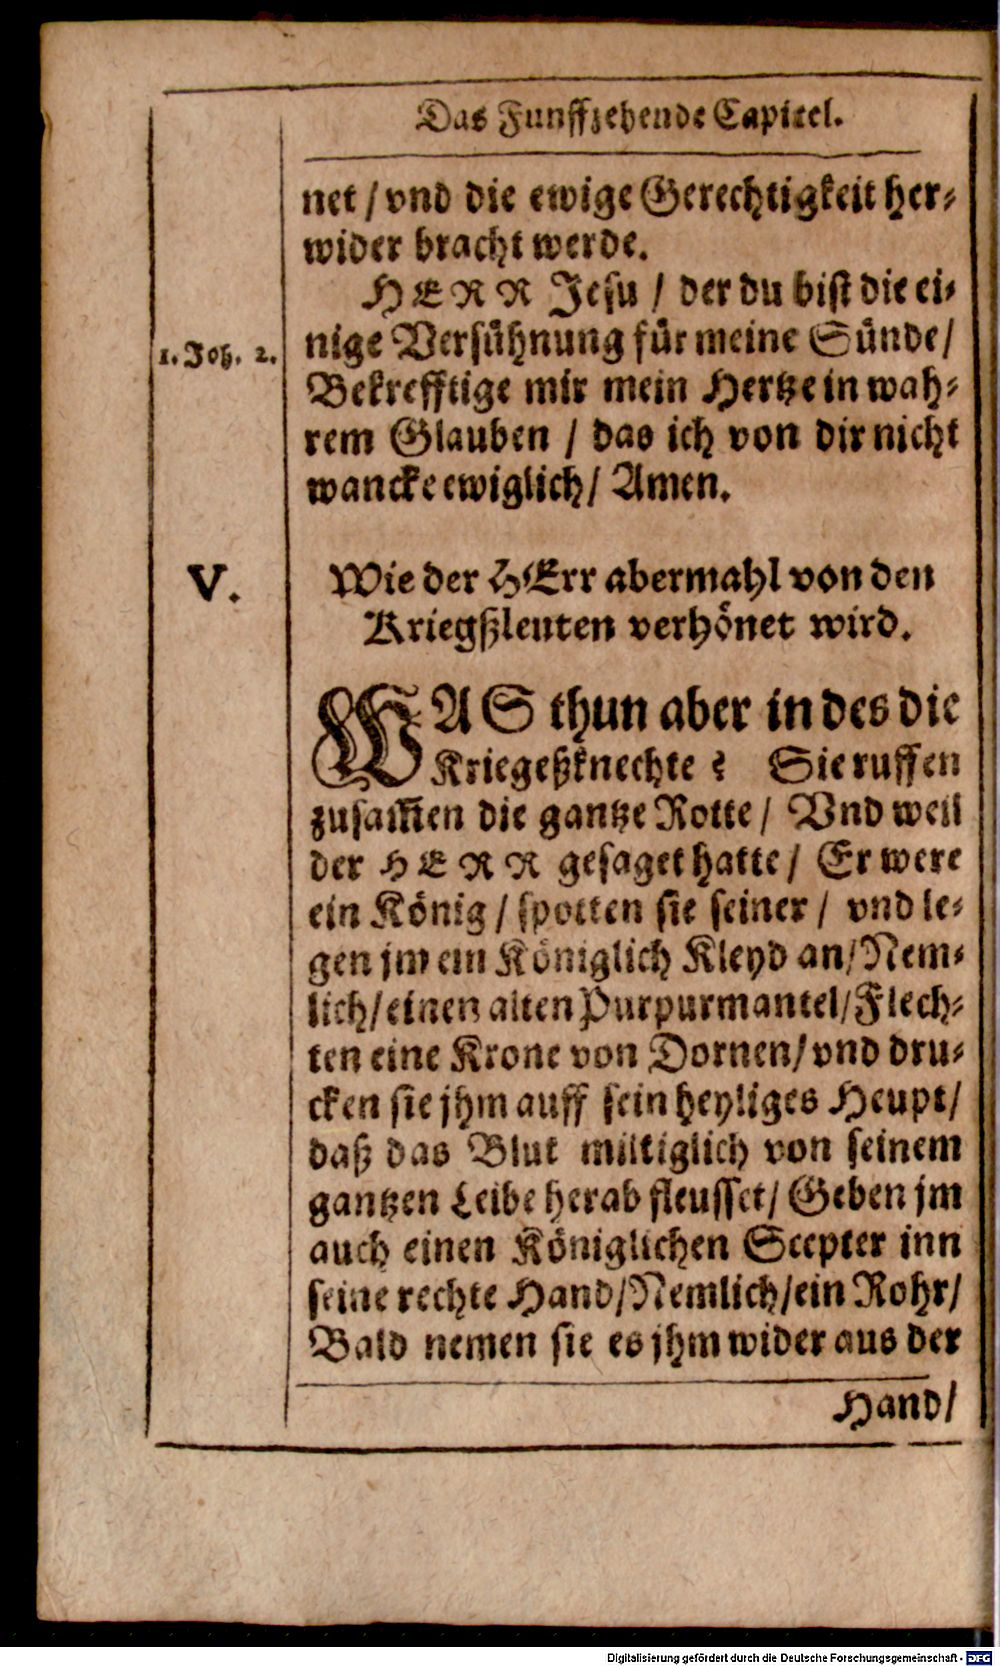 Das Funffzehende Capitel.
net / vnd die ewige Gerechtigkeit her-
wider bracht werde.
HERR Jesu / der du bist die ei-
nige Versühnung für meine Sünde /
1. Joh. 2.
Bekrefftige mir mein Hertze in wah-
rem Glauben / das ich von dir nicht
wancke ewiglich / Amen.
V.
Wie der HErr abermahl von den
Kriegßleuten verhönet wird.
WAS thun aber in des die
Kriegeßknechte? Sie ruffen
zusam̅en die gantze Rotte / Vnd weil
der HERR gesaget hatte / Er were
ein König / spotten sie seiner / vnd le-
gen jm ein Königlich Kleyd an / Nem-
lich / einen alten Purpurmantel / Flech-
ten eine Krone von Dornen / vnd dru-
cken sie jhm auff sein heyliges Heupt /
daß das Blut miltiglich von seinem
gantzen Leibe herab fleusset / Geben jm
auch einen Königlichen Scepter inn
seine rechte Hand / Nemlich / ein Rohr /
Bald nemen sie es jhm wider aus der
Hand /
Digitalisierung gefördert durch die Deutsche Forschungsgemeinschaft - DFG